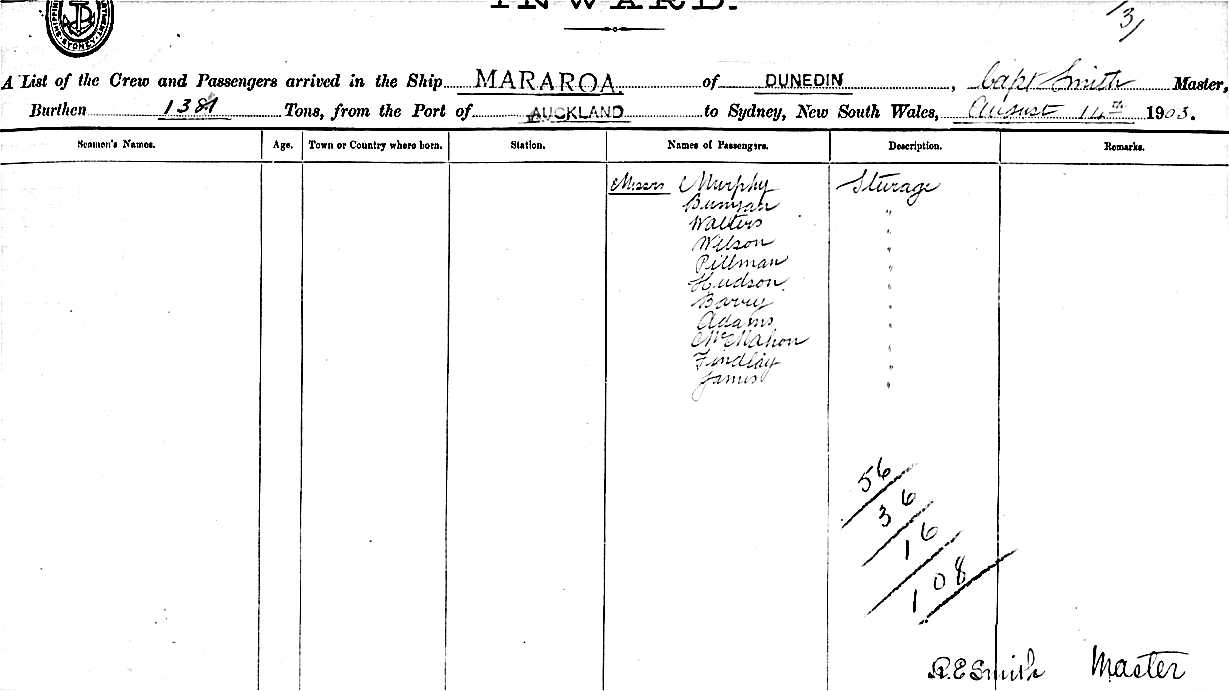 INWARD.
3
SYDNEY
A List of the Crew and Passengers arrived in the Ship MARAROA. of DUNEDIN, Capt Smith Master,
Burthen 1381 Tons, from the Port of AUCKLAND to Sydney, New South Wales, August 14th 1903.
Seamen's Names. Age. Town or Country where born. Station. Names of Passengers. Description. Remarks.
Messrs Murphy Sturage
Bunyan "
Walters "
Wilson "
Pillman "
Hudson "
Barry "
Adams "
McMahon "
Findlay "
James "
56
36
16
108
R.E Smith Master